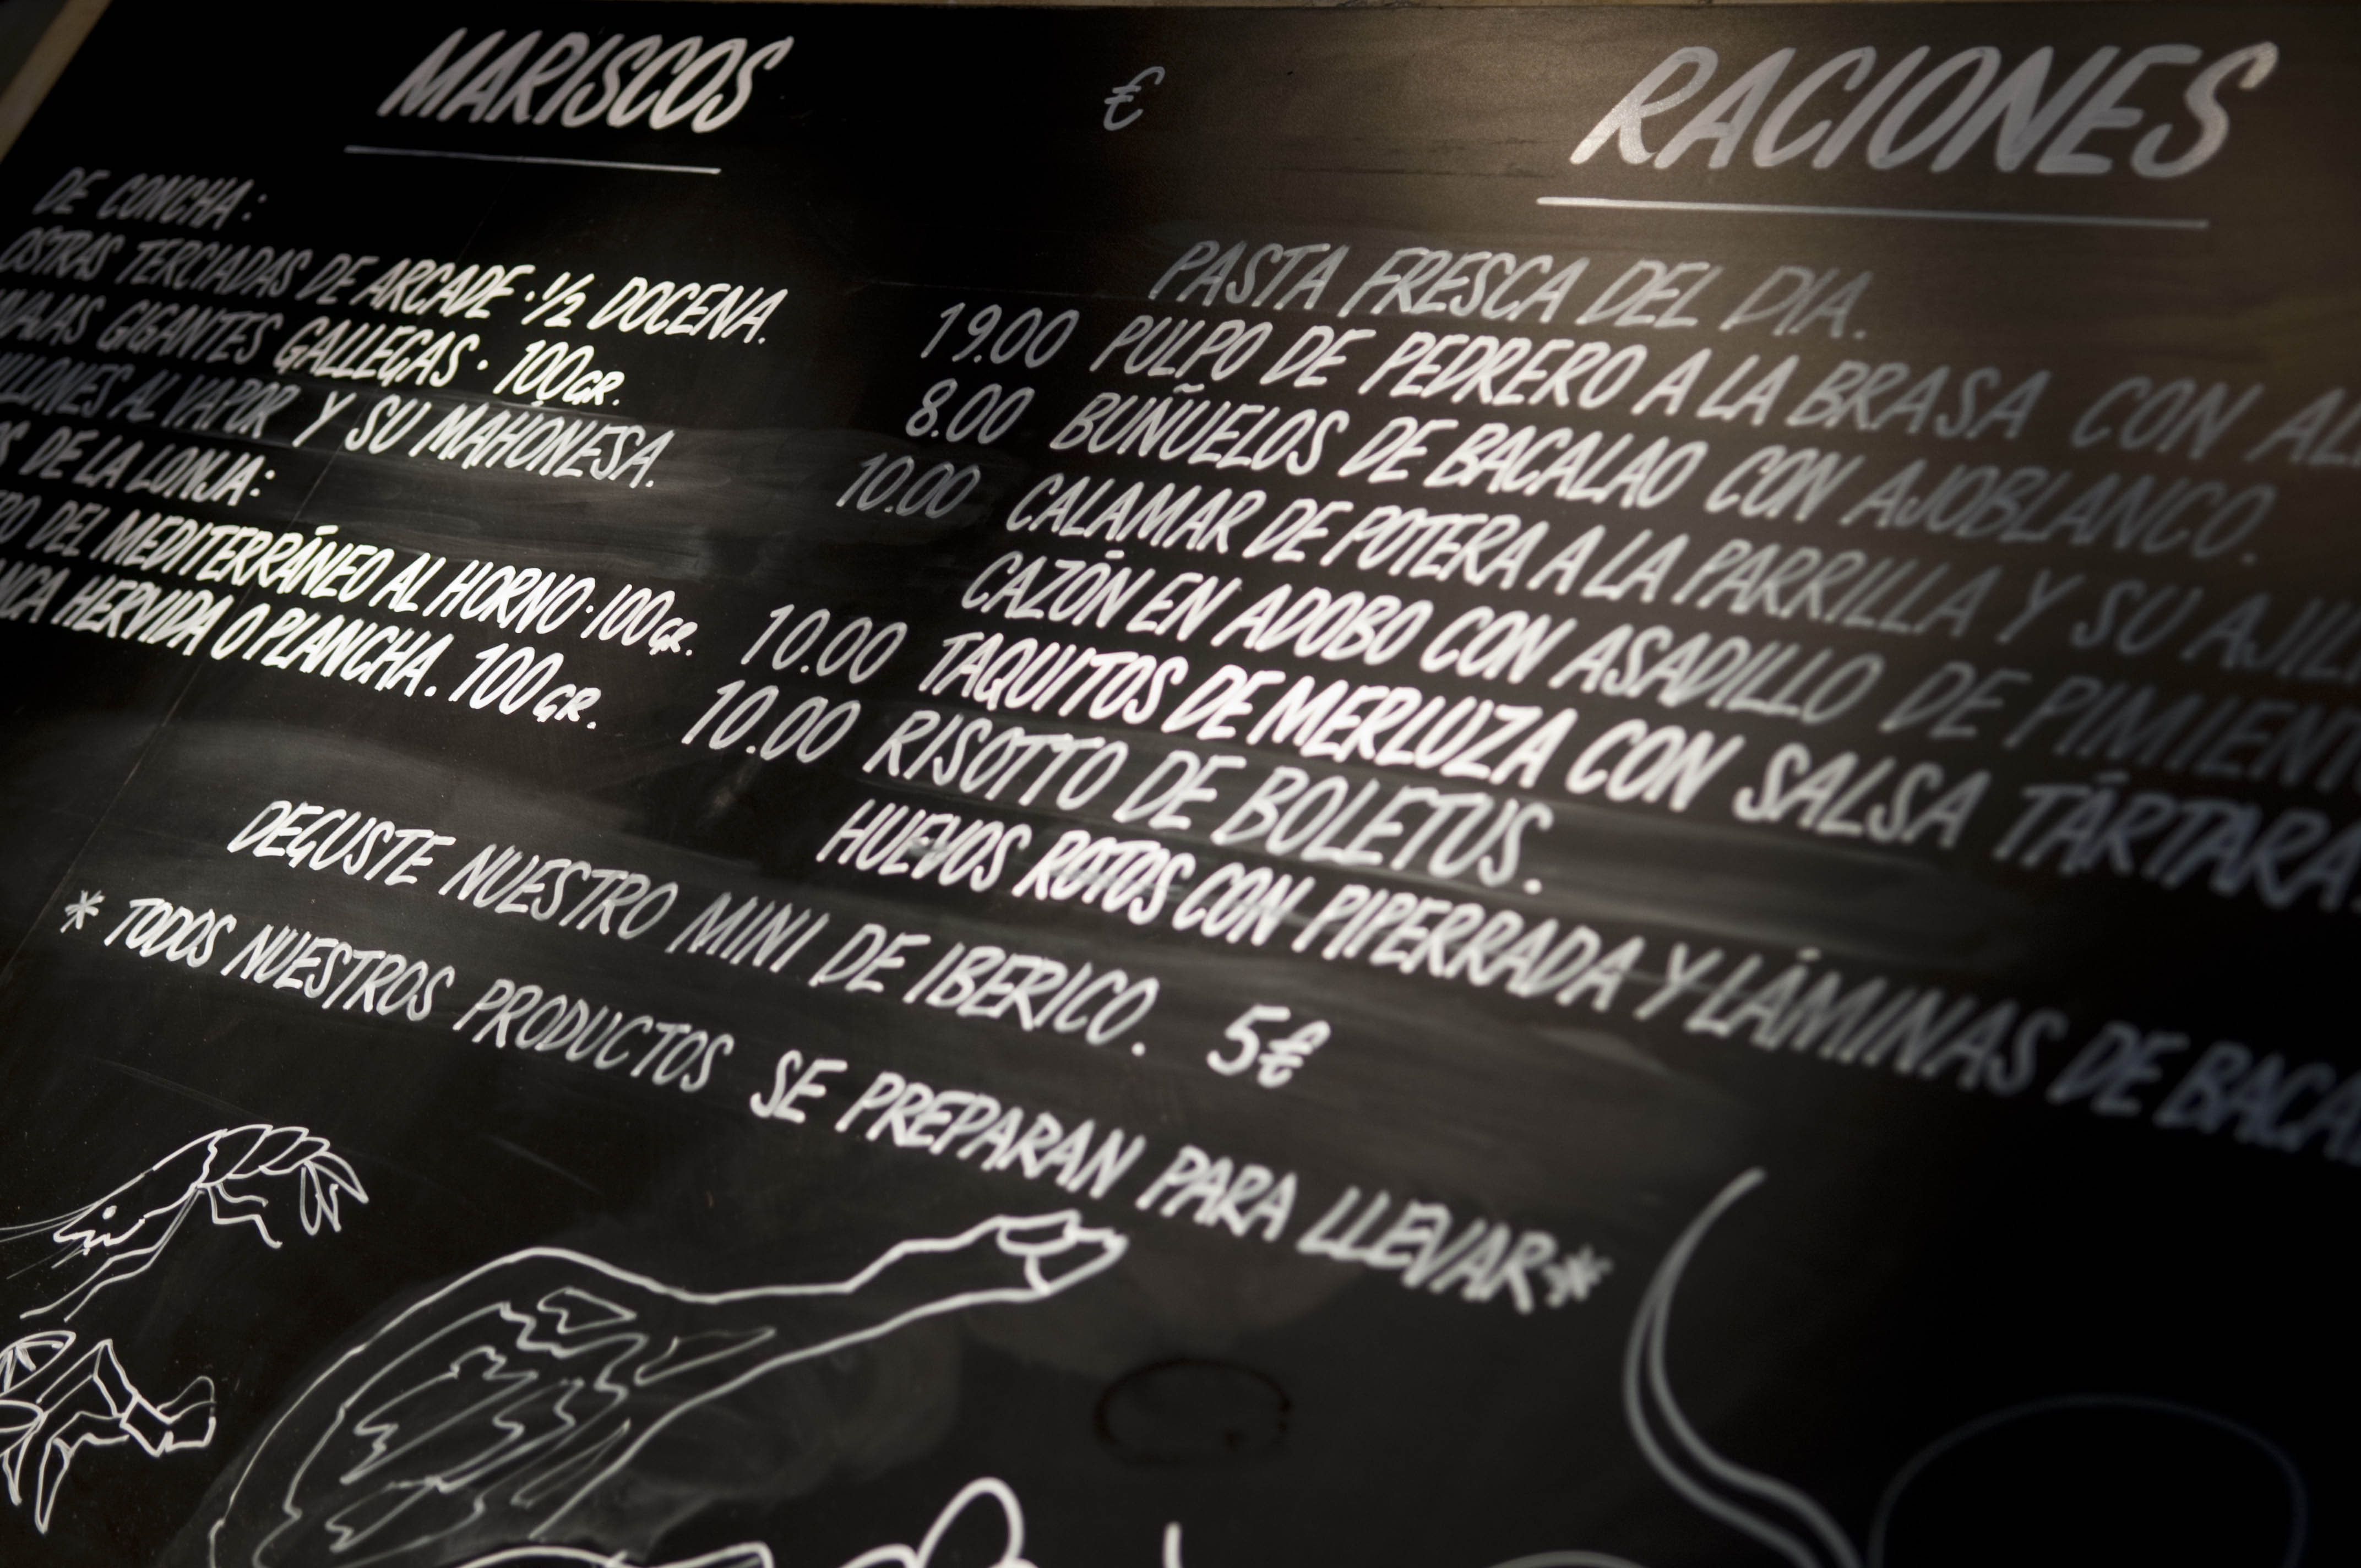 MARISCOS
€
DE CONCHA:
OSTRAS TERCIADAS DE ARCADE · 1/2 DOCENA. 19.00
GIGANTES GALLEGAS · 100 GR. 8.00
AL VAPOR Y SU MAHONESA. 10.00
DE LA LONJA:
DEL MEDITERRÁNEO AL HORNO · 100 GR. 10.00
HERVIDA O PLANCHA. 100 GR. 10.00
DEGUSTE NUESTRO MINI DE IBERICO. 5€
* TODOS NUESTROS PRODUCTOS SE PREPARAN PARA LLEVAR *
RACIONES
PASTA FRESCA DEL DIA.
PULPO DE PEDRERO A LA BRASA CON
BUÑUELOS DE BACALAO CON AJOBLANCO.
CALAMAR DE POTERA A LA PARRILLA Y SU
CAZÓN EN ADOBO CON ASADILLO DE
TAQUITOS DE MERLUZA CON SALSA TÁRTARA
RISOTTO DE BOLETUS.
HUEVOS ROTOS CON PIPERRADA Y LÁMINAS DE